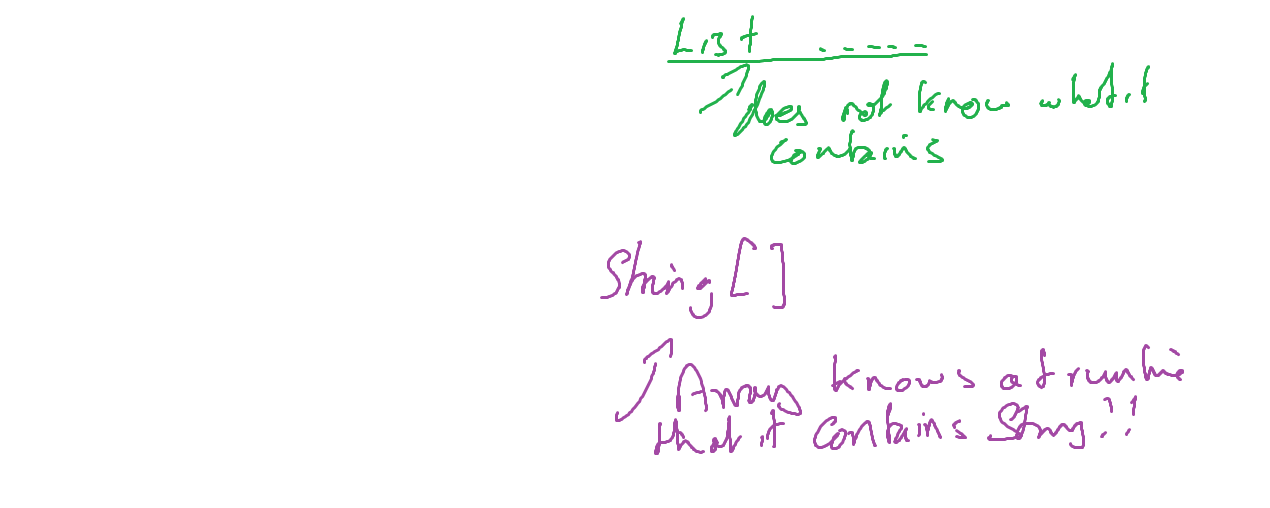 List .-----
does not know what it
contains
String []
Array knows at runtime
that it contains String!!